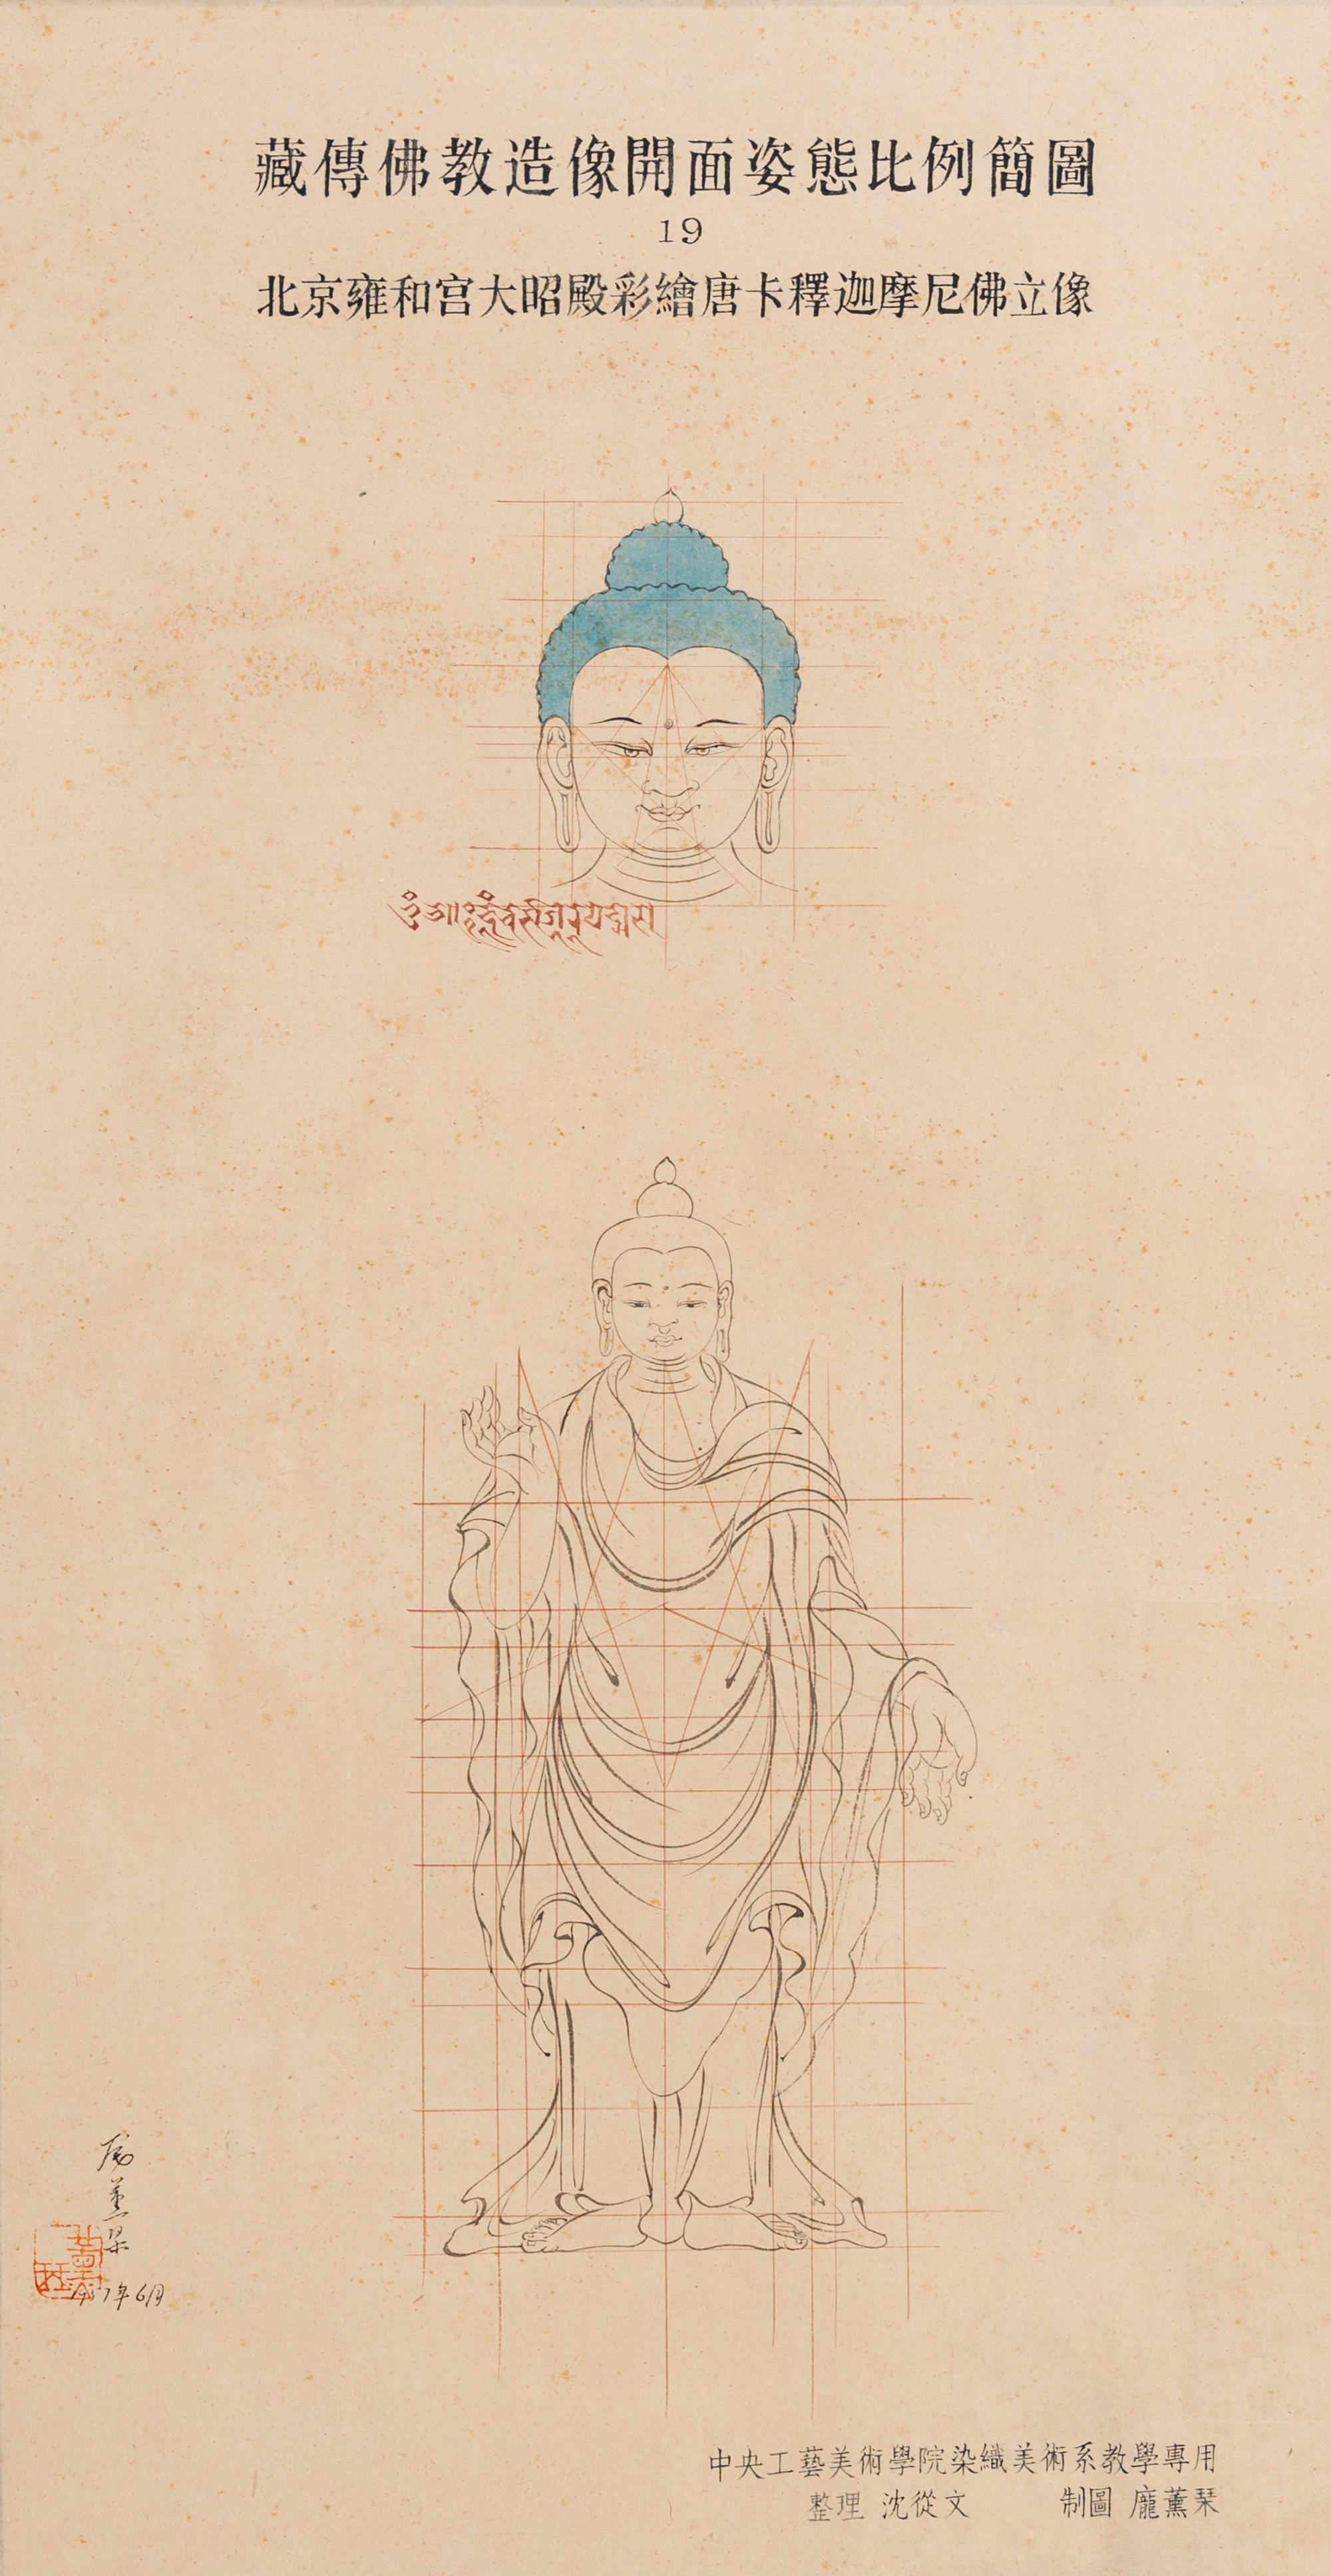 藏傳佛教造像開面姿態比例簡圖
19
北京雍和宮大昭殿彩繪唐卡釋迦摩尼佛立像
年6月
中央工藝美術學院染織美術系教學專用
整理 沈從文 制圖 龐薰琹